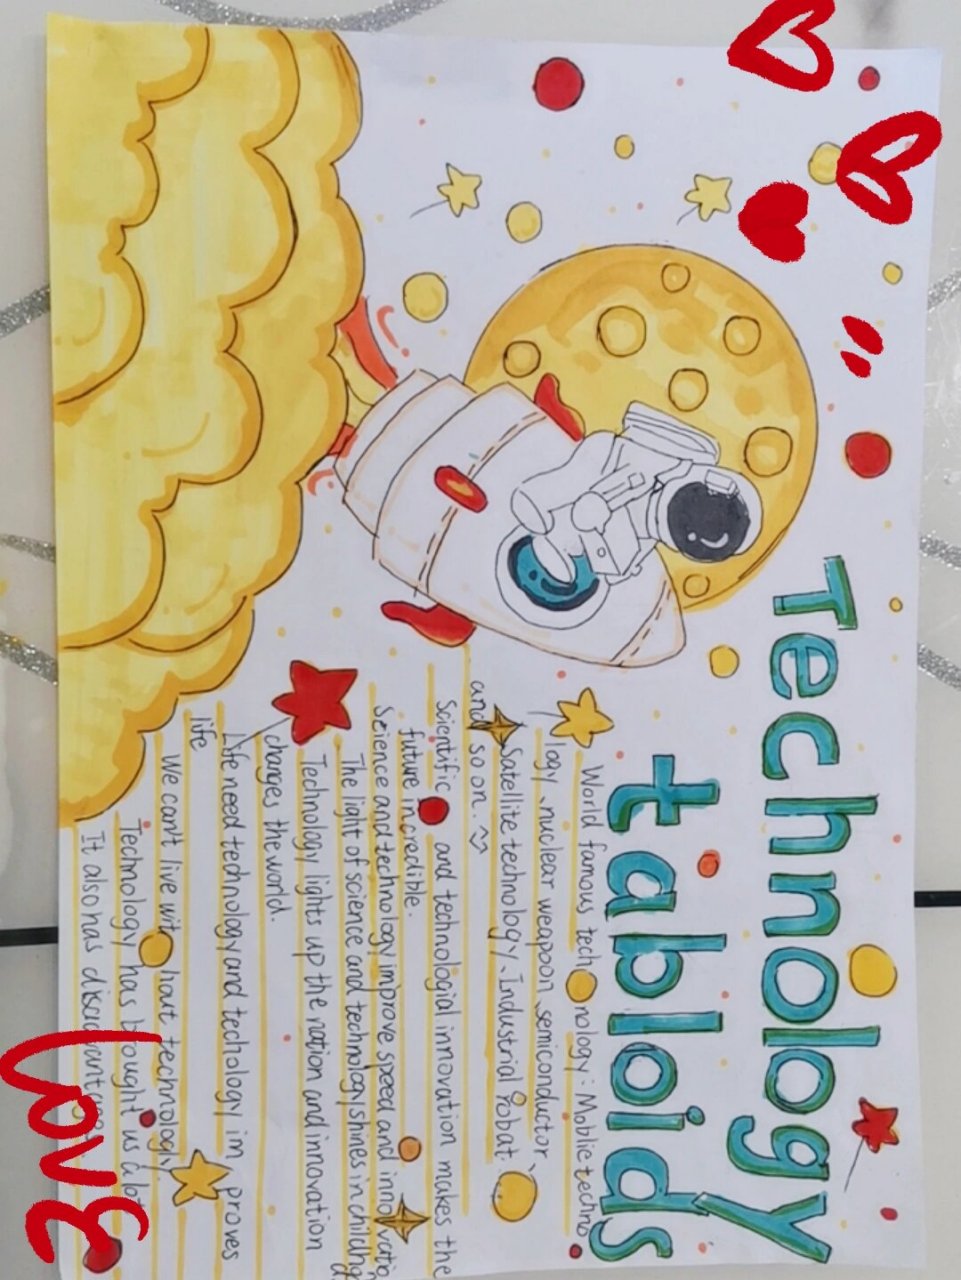 Technology
tabloids
World famous technology: Moblie techno
logy、nuclear weapoon、semiconductor、
Satellite technology、Industrial robat
and so on.
Scientific and technologial innovation makes the
future incredible.
Science and technology improve speed and innovatio
The light of science and technology shines in childhg
Technology lights up the nation and innovation
changes the world.
Life need technology and techology im proves
life
We can't live without technology.
Technology has brought us a lot
It also has
Love